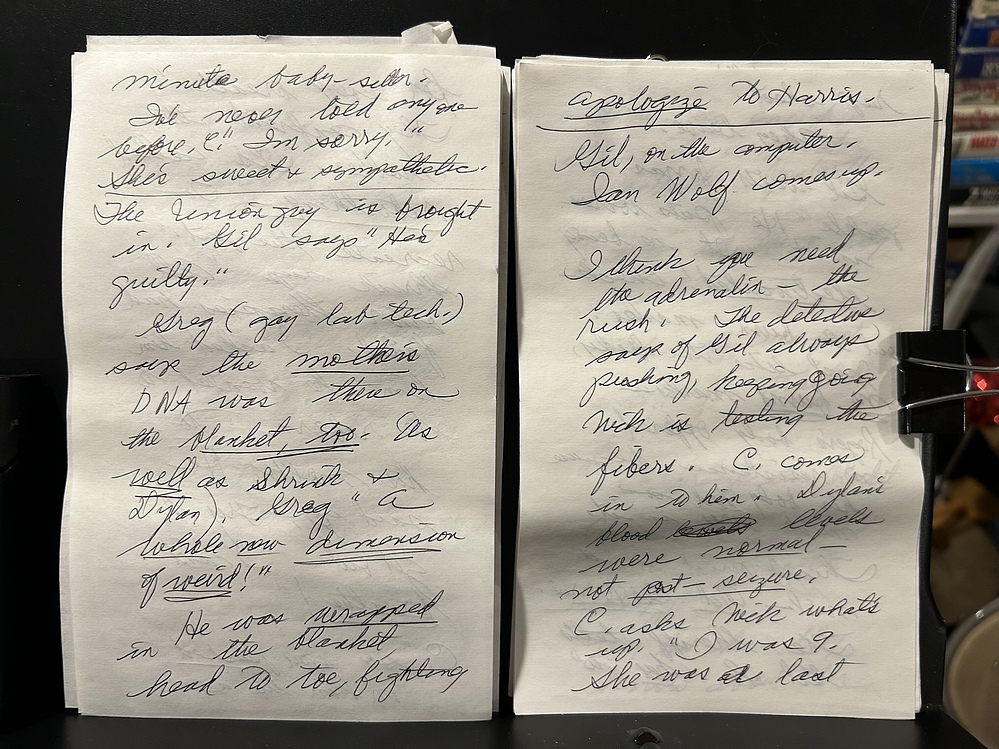 minute baby-sitter.
I've never told anyone
before, C." I'm sorry."
She's sweet & sympathetic.
The Union guy is brought
in. Gil says "He's
guilty."
Greg (gay lab tech.)
says the mother's
DNA was there on
the blanket, too. (as
well as Shrink &
Dylan). Greg "A
whole new dimension
of weird!"
He was wrapped
in the blanket,
head to toe, fighting
apologize to Harris.
Gil, on the computer.
Ian Wolf comes up.
I think you need
the adrenalin — the
rush. The detective
says of Gil always
pushing, keeping going
Nick is testing the
fibers. C. comes
in to him. Dylan's
blood levels levels
were normal—
not post-seizure.
C. asks Nick what's
up. "I was 9.
She was a last